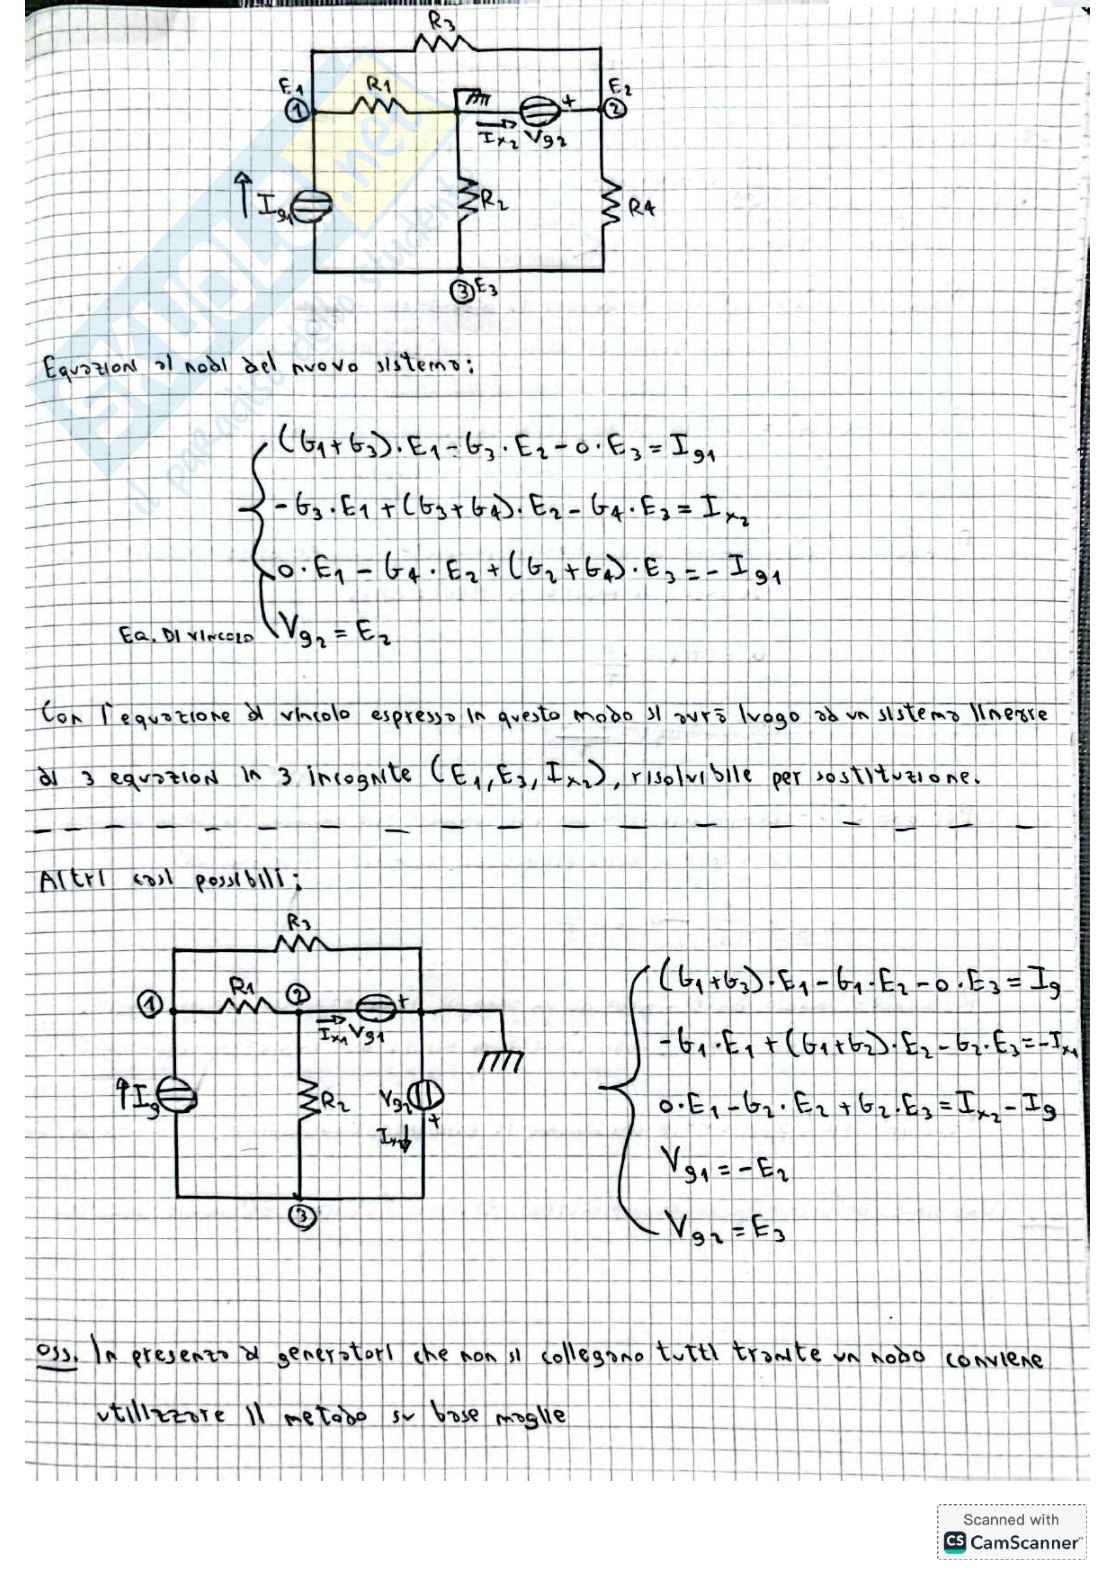 R3
E1
R1
E2
1
+
2
Ix2 Vg2
Ig1
R2
R4
3 E3
SKUOLA.net
il paradiso dello studente
Equazioni ai nodi del nuovo sistema:
(G1+G3)·E1-G3·E2-0·E3=Ig1
-G3·E1+(G3+G4)·E2-G4·E3=Ix2
0·E1-G4·E2+(G2+G4)·E3=-Ig1
EQ. DI VINCOLO Vg2=E2
Con l'equazione di vincolo espressa in questo modo si avrà luogo ad un sistema lineare
di 3 equazioni in 3 incognite (E1,E3,Ix2), risolvibile per sostituzione.
Altri casi possibili:
R3
R1
2
1
+
Ix1 Vg1
Ig
R2
Vg2
+
Ix2
3
(G1+G3)·E1-G1·E2-0·E3=Ig
-G1·E1+(G1+G2)·E2-G2·E3=-Ix1
0·E1-G2·E2+G2·E3=Ix2-Ig
Vg1=-E2
Vg2=E3
Oss. In presenza di generatori che non si collegano tutti tramite un nodo conviene
utilizzare il metodo su base maglie
Scanned with
CS CamScanner